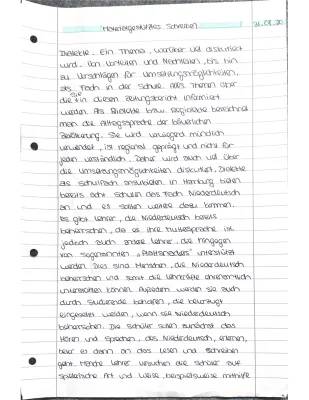 Materialgestütztes Schreiben
Dialekte. Ein Thema, worüber viel diskutiert
wird. Von Vorteilen und Nachteilen, bis hin
zu Vorschlägen für Umsetzungsmöglichkeiten,
als Fach in der Schule. Alles Themen über
die Sie in diesem Zeitungsbericht informiert
werden. Als Dialekte bzw. Regiolekte bezeichnet
man die Alltagssprache der bäuerlichen
Bevölkerung. Sie wird vorwiegend mündlich
verwendet, ist regional geprägt und nicht für
jeden verständlich. Daher wird auch viel über
die Umsetzungsmöglichkeiten diskutiert, Dialekte
als Schulfach anzubieten. In Hamburg bieten
bereits acht Schulen das Fach Niederdeutsch
an und es sollen weitere dazu kommen.
Es gibt Lehrer, die Niederdeutsch bereits
beherrschen, da es ihre Muttersprache ist
jedoch auch andere Lehrer, die hingegen
von sogenannten unterstützt
werden. Dies sind Menschen, die Niederdeutsch
beherrschen und somit die Lehrkräfte ehrenamtlich
unterstützen können. Außerdem werden sie auch
durch Studierende beholfen, die bevorzugt
eingesetzt werden, wenn sie Niederdeutsch
beherrschen. Die Schüler sollen zunächst das
Hören und Sprechen, des Niederdeutsch, erlernen,
bevor es dann an das Lesen und Schreiben
geht. Manche Lehrer versuchen die Schüler auf
spielerische Art und Weise, beispielsweise mithilfe